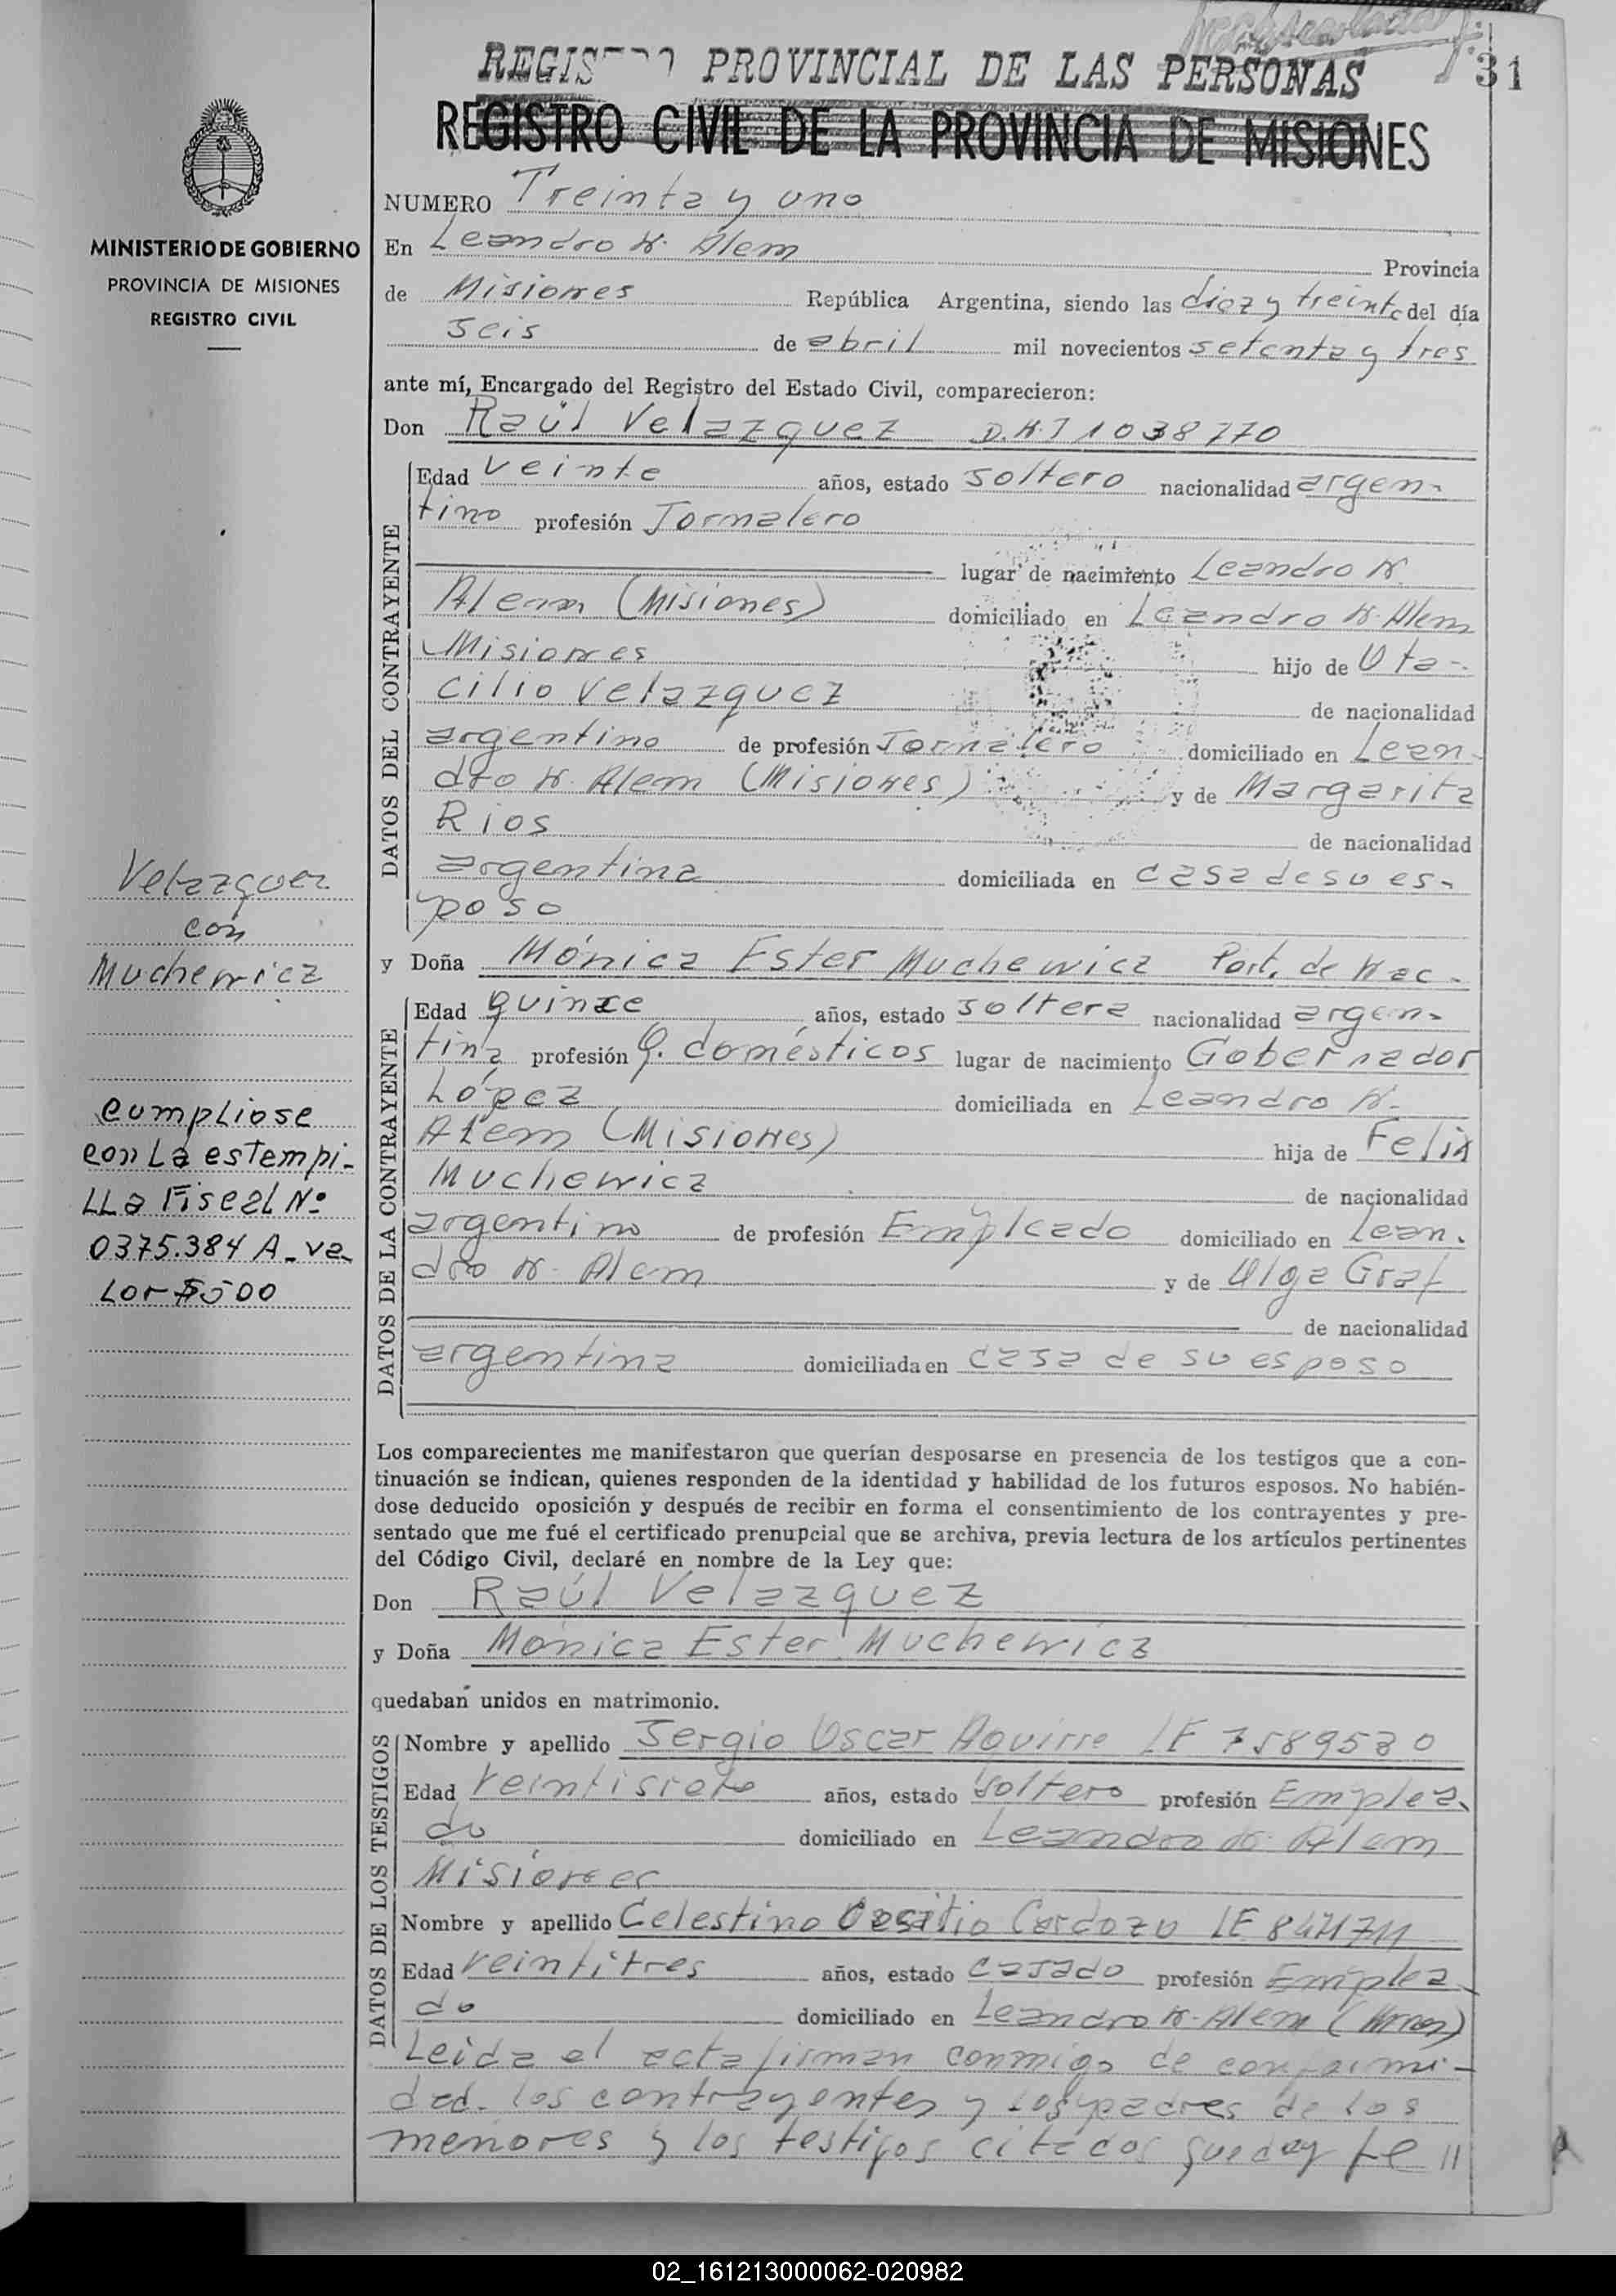 REGISTRO PROVINCIAL DE LAS PERSONAS
31
REGISTRO CIVIL DE LA PROVINCIA DE MISIONES
MINISTERIO DE GOBIERNO
PROVINCIA DE MISIONES
REGISTRO CIVIL
NUMERO Treinta y uno
En Leandro N. Alem Provincia
de Misiones República Argentina, siendo las diez y treinta del día
seis de abril mil novecientos setenta y tres
ante mí, Encargado del Registro del Estado Civil, comparecieron:
Don Raúl Velazquez D.N.I 1038770
DATOS DEL CONTRAYENTE
Edad veinte años, estado soltero nacionalidad argen-
tino profesión Jornalero
lugar de nacimiento Leandro N.
Alem (Misiones) domiciliado en Leandro N. Alem
Misiones hijo de Ota-
cilio Velazquez de nacionalidad
argentino de profesión Jornalero domiciliado en Lean-
dro N. Alem (Misiones) y de Margarita
Rios de nacionalidad
argentina domiciliada en casa de su es-
poso
Velazquez
con
Muchewicz
y Doña Mónica Ester Muchewicz Part. de Nac-
DATOS DE LA CONTRAYENTE
Edad quince años, estado soltera nacionalidad argen-
tina profesión Q. domésticos lugar de nacimiento Gobernador
López domiciliada en Leandro N.
Alem (Misiones) hija de Felix
Muchewicz de nacionalidad
argentino de profesión Empleado domiciliado en Lean.
dro N. Alem y de Olga Graf
de nacionalidad
argentina domiciliada en casa de su esposo
cumpliose
con La estempi-
LLa Fiscal No
0375.384 A- va
Lor $500
Los comparecientes me manifestaron que querían desposarse en presencia de los testigos que a con-
tinuación se indican, quienes responden de la identidad y habilidad de los futuros esposos. No habién-
dose deducido oposición y después de recibir en forma el consentimiento de los contrayentes y pre-
sentado que me fué el certificado prenupcial que se archiva, previa lectura de los artículos pertinentes
del Código Civil, declaré en nombre de la Ley que:
Don Raúl Velazquez
y Doña Mónica Ester Muchewicz
quedaban unidos en matrimonio.
DATOS DE LOS TESTIGOS
Nombre y apellido Sergio Oscar Aguirre LE 7589530
Edad veintisiete años, estado soltero profesión Emplea-
do domiciliado en Leandro N. Alem
Misiones
Nombre y apellido Celestino Cardozo LE
Edad veintitres años, estado casado profesión Emplea-
do domiciliado en Leandro N. Alem
Leida el acta firman conmigo de conformi-
dad. los contrayentes y los padres de los
menores y los testigos citados que doy fe //
02_161213000062-020982